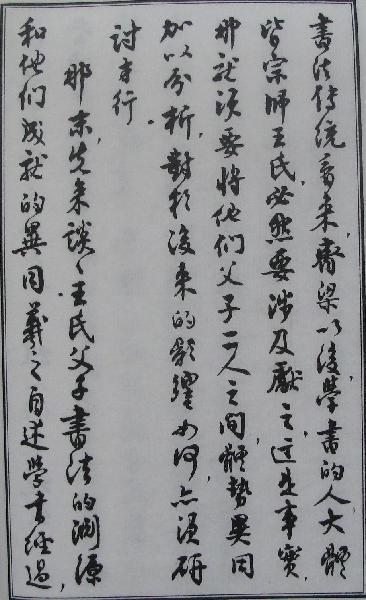 書法傳統看来，齊梁以後學書的人，大體
皆宗師王氏，必然要涉及獻之，这是事實，
那就須要將他们父子二人之间，體勢異同
加以分析，對於後来的影響如何，亦須研
討才行。
那末，先来談〻王氏父子書法的淵源
和他们成就的異同。羲之自述學書經過，